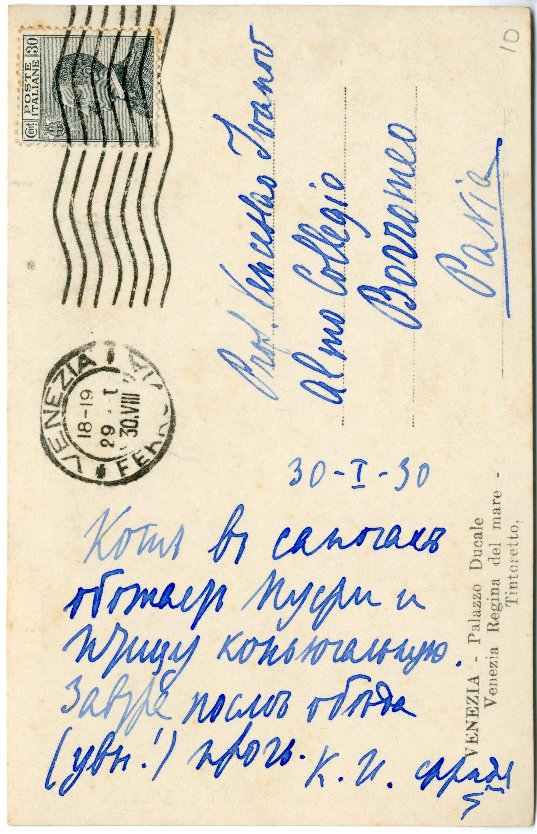 10
POSTE
ITALIANE
Cent 30
VENEZIA
18-19
29 · I
30.VIII
Prof. Venceslao Ivanov
Almo Collegio
Borromeo
Pavia
30-I-30
Котъ въ сапогахъ
обожаетъ и
птицу
Завтра послѣ обѣда
(увы!) прочь. К. И.
VENEZIA - Palazzo Ducale
Venezia Regina del mare -
Tintoretto.